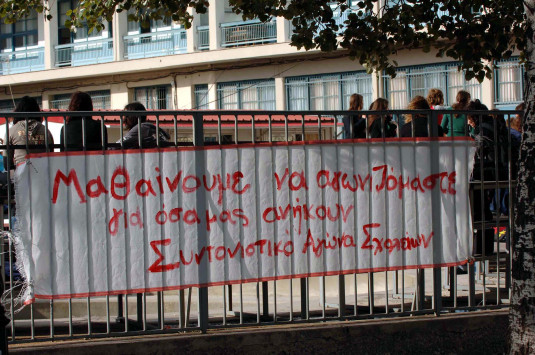 Μαθαίνουμε να αγωνιζόμαστε
για όσα μας ανήκουν
Συντονιστικό Αγώνα Σχολείων